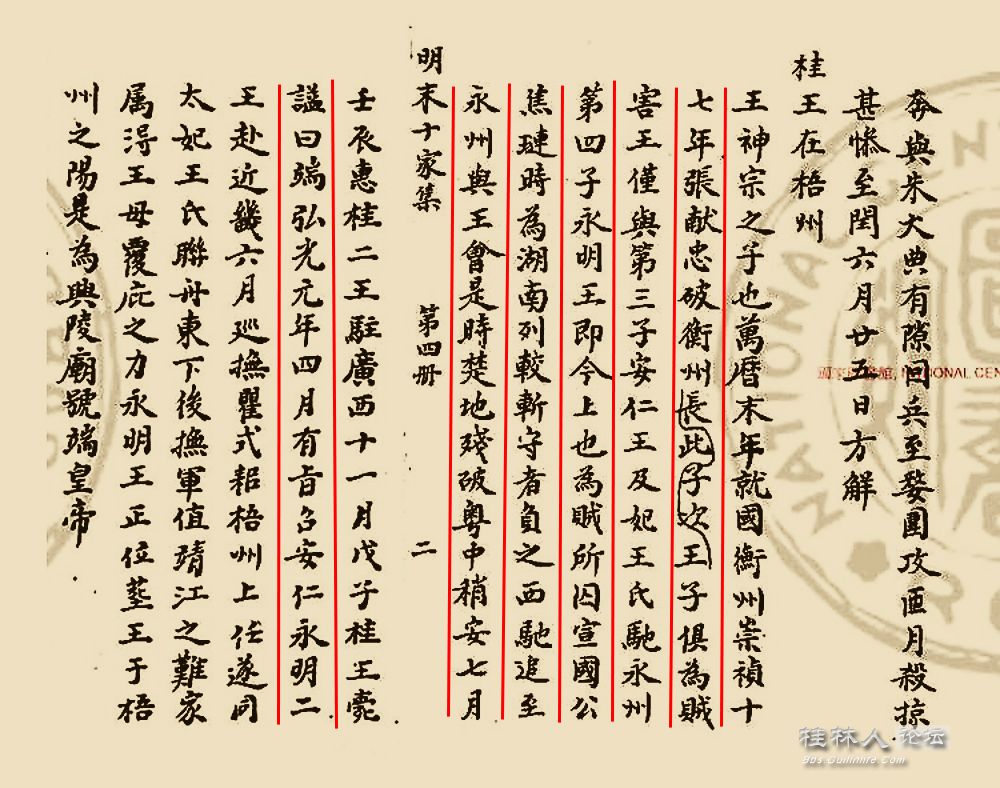 奔與朱大典有隙回兵至婺圍攻匝月殺掠
甚慘至閏六月廿五日方解
桂王在梧州
王神宗之子也萬曆末年就國衡州崇禎十
七年張献忠破衡州長此子次王子俱為賊
害王僅與第三子安仁王及妃王氏馳永州
第四子永明王即今上也為賊所囚宣國公
焦璉時為湖南列較斬守者負之西馳追至
永州與王會是時楚地殘破粵中稍安七月
明末十家集 第四册 二
壬辰惠桂二王駐廣西十一月戊子桂王薨
謚曰端弘光元年四月有旨召安仁永明二
王赴近畿六月巡撫瞿式耜梧州上任遂同
太妃王氏聯舟東下後撫軍值靖江之難家
属淂王母覆庇之力永明王正位塟王于梧
州之陽是為興陵廟號端皇帝
國家圖書館, NATIONAL CEN
NATIONAL
桂林人论坛
9bs.Guilinlife.Com